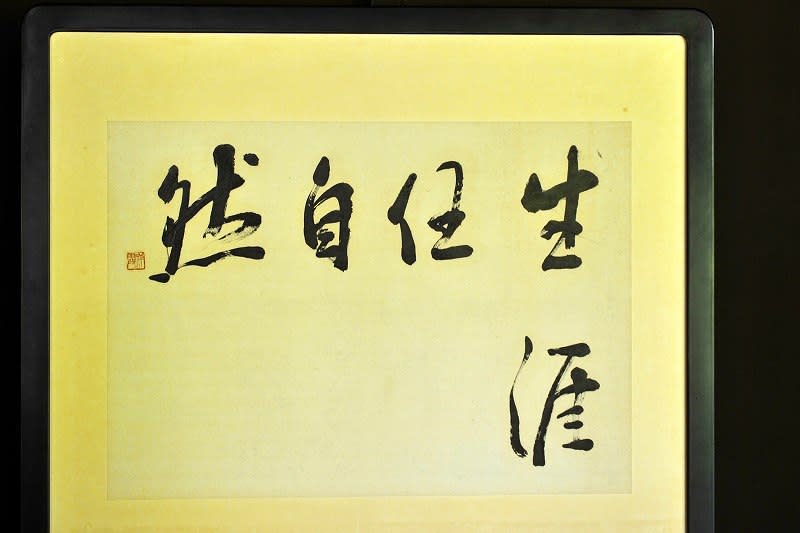 生涯
任
自
然